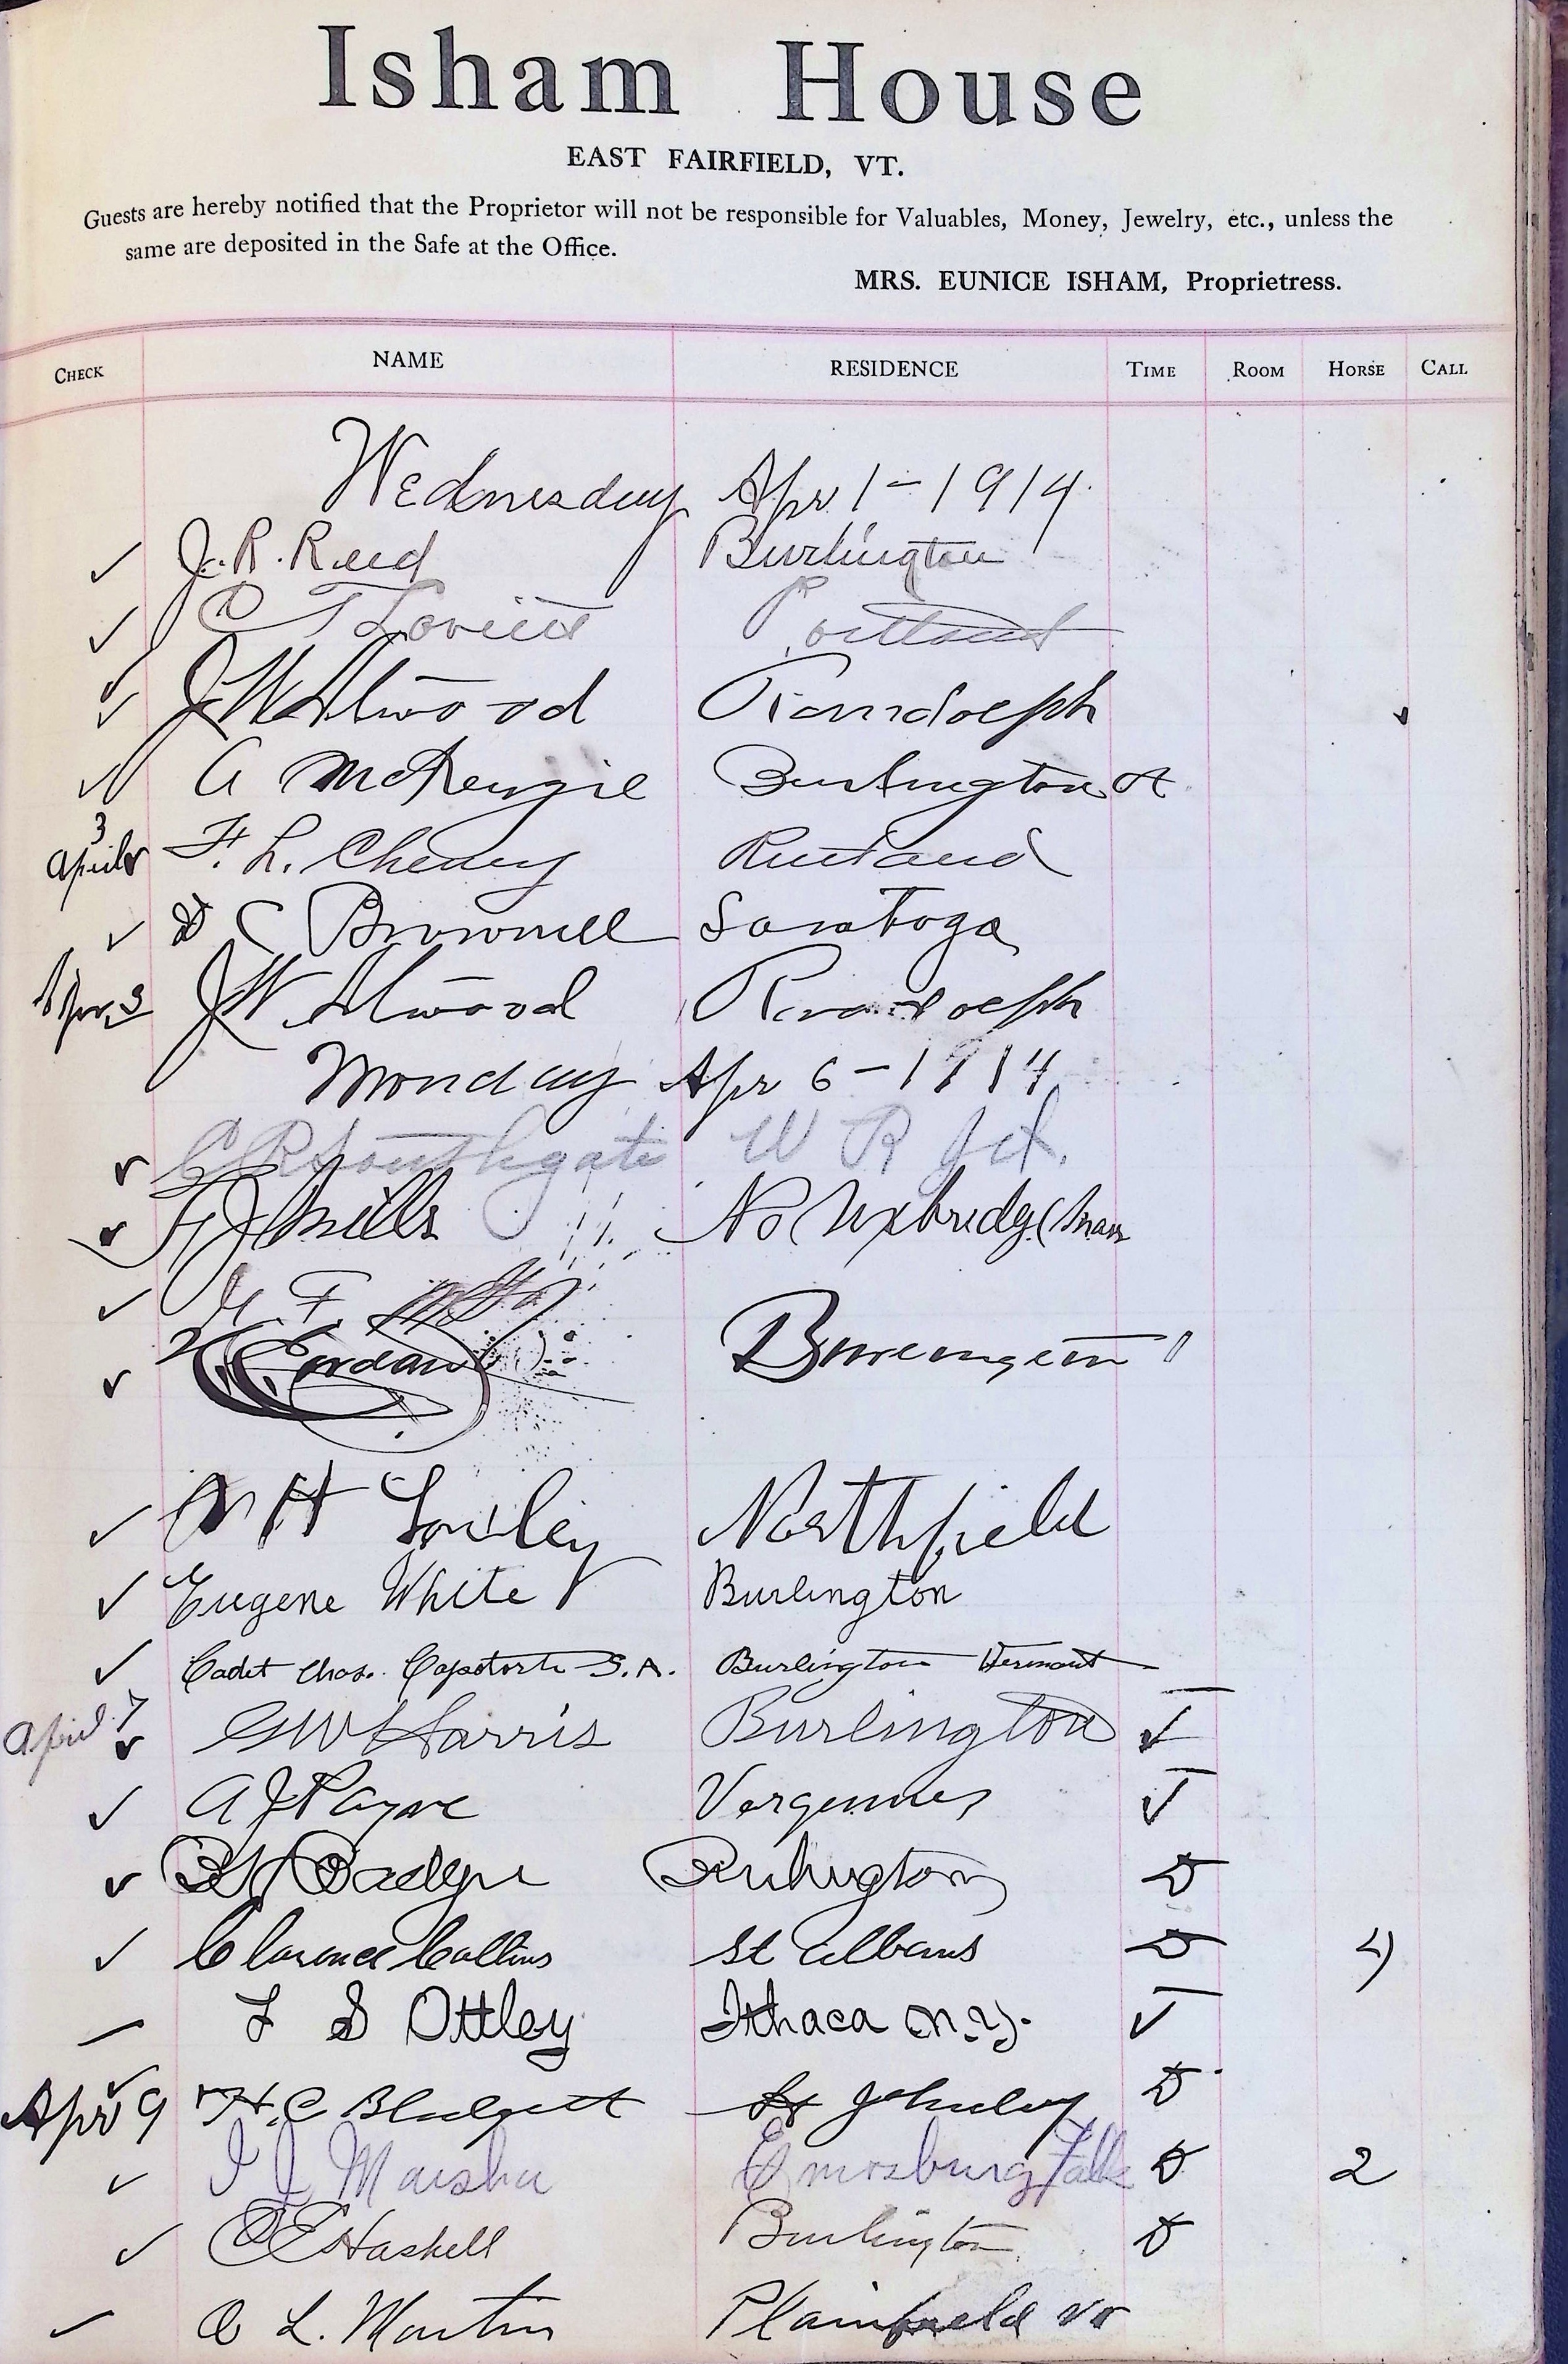 Isham House
EAST FAIRFIELD, VT.
Guests are hereby notified that the Proprietor will not be responsible for Valuables, Money, Jewelry, etc., unless the
same are deposited in the Safe at the Office.
MRS. EUNICE ISHAM, Proprietress.
CHECK NAME RESIDENCE TIME ROOM HORSE CALL
Wednesday Apr 1-1914
✓ J. R. Reed Burlington
✓ C T Portland
✓ J W Atwood Randolph
✓ A McKenzie Burlington Vt
April 3 F. L. Cheney Rutland
✓ D C Brownell Saratoga
Apr 3 J W Atwood Randolph
Monday Apr 6-1914
✓ C R Southgate W R Jct.
✓ Mills No Uxbridge Mass
✓ F.
✓ Jordan Burlington
✓ H Smiley Northfield
✓ Eugene White Burlington
✓ Cadet Chas. S.A. Burlington Vermont
April 7 ✓ G W Harris Burlington ✓
✓ A J Payne Vergennes ✓
✓ Burlington D
✓ Clarence Collins St Albans D 4
L S Ottley Ithaca N.Y. ✓
Apr 9 H. C Blodgett St Johnsbury D
✓ J Enosburg Falls D 2
✓ C E Haskell Burlington D
✓ O L. Martin Plainfield Vt